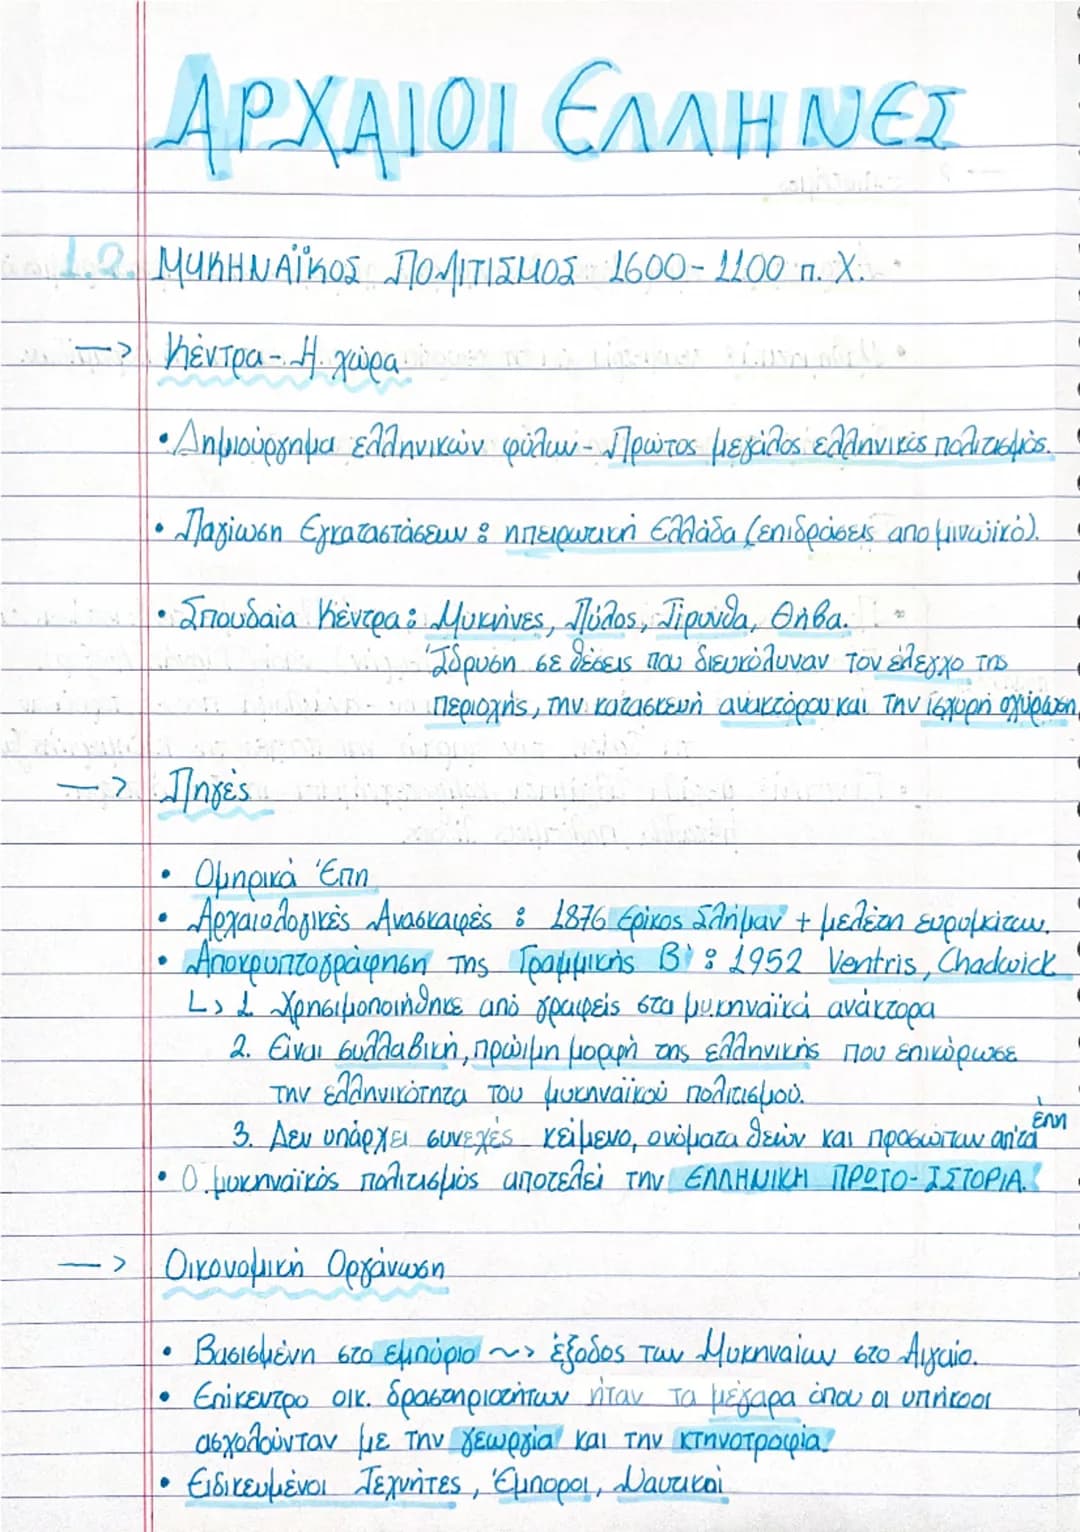 ΑΡΧΑΙΟΙ ΕΛΛΗΝΕΣ
1.2. ΜΥΚΗΝΑΪΚΟΣ ΠΟΛΙΤΙΣΜΟΣ 1600-1100 π. Χ.
—> Κέντρα - Η χώρα
• Δημιούργημα ελληνικών φύλων - Πρώτος μεγάλος ελληνικός πολιτισμός.
• Παγίωση Εγκαταστάσεων : ηπειρωτική Ελλάδα (επιδράσεις απο μινωϊκό).
• Σπουδαία Κέντρα : Μυκήνες, Πύλος, Τίρυνθα, Θήβα.
Ίδρυση σε θέσεις που διευκόλυναν τον έλεγχο της
περιοχής, την κατασκευή ανακτόρου και την ισχυρή οχύρωση
—> Πηγές
• Ομηρικά Έπη
• Αρχαιολογικές Ανασκαφές : 1876 Ερίκος Σλήμαν + μελέτη ευρυμάτων.
• Αποκρυπτογράφηση της Γραμμικής Β' : 1952 Ventris, Chadwick
L> 1. Χρησιμοποιήθηκε από γραφείς στα μυκηναϊκά ανάκτορα
2. Είναι συλλαβική, πρώιμη μορφή της ελληνικής που επικύρωσε
την ελληνικότητα του μυκηναϊκού πολιτισμού.
3. Δεν υπάρχει συνεχές κείμενο, ονόματα θεών και προσώπων απ'τα έπη
• Ο μυκηναϊκός πολιτισμός αποτελεί την ΕΛΛΗΝΙΚΗ ΠΡΩΤΟ-ΙΣΤΟΡΙΑ.
—> Οικονομική Οργάνωση
• Βασισμένη στο εμπόριο ~> έξοδος των Μυκηναίων στο Αιγαίο.
• Επίκεντρο οικ. δραστηριοτήτων ήταν τα μέγαρα όπου οι υπήκοοι
ασχολούνταν με την γεωργία και την κτηνοτροφία.
• Ειδικευμένοι Τεχνήτες, Έμποροι, Ναυτικοί